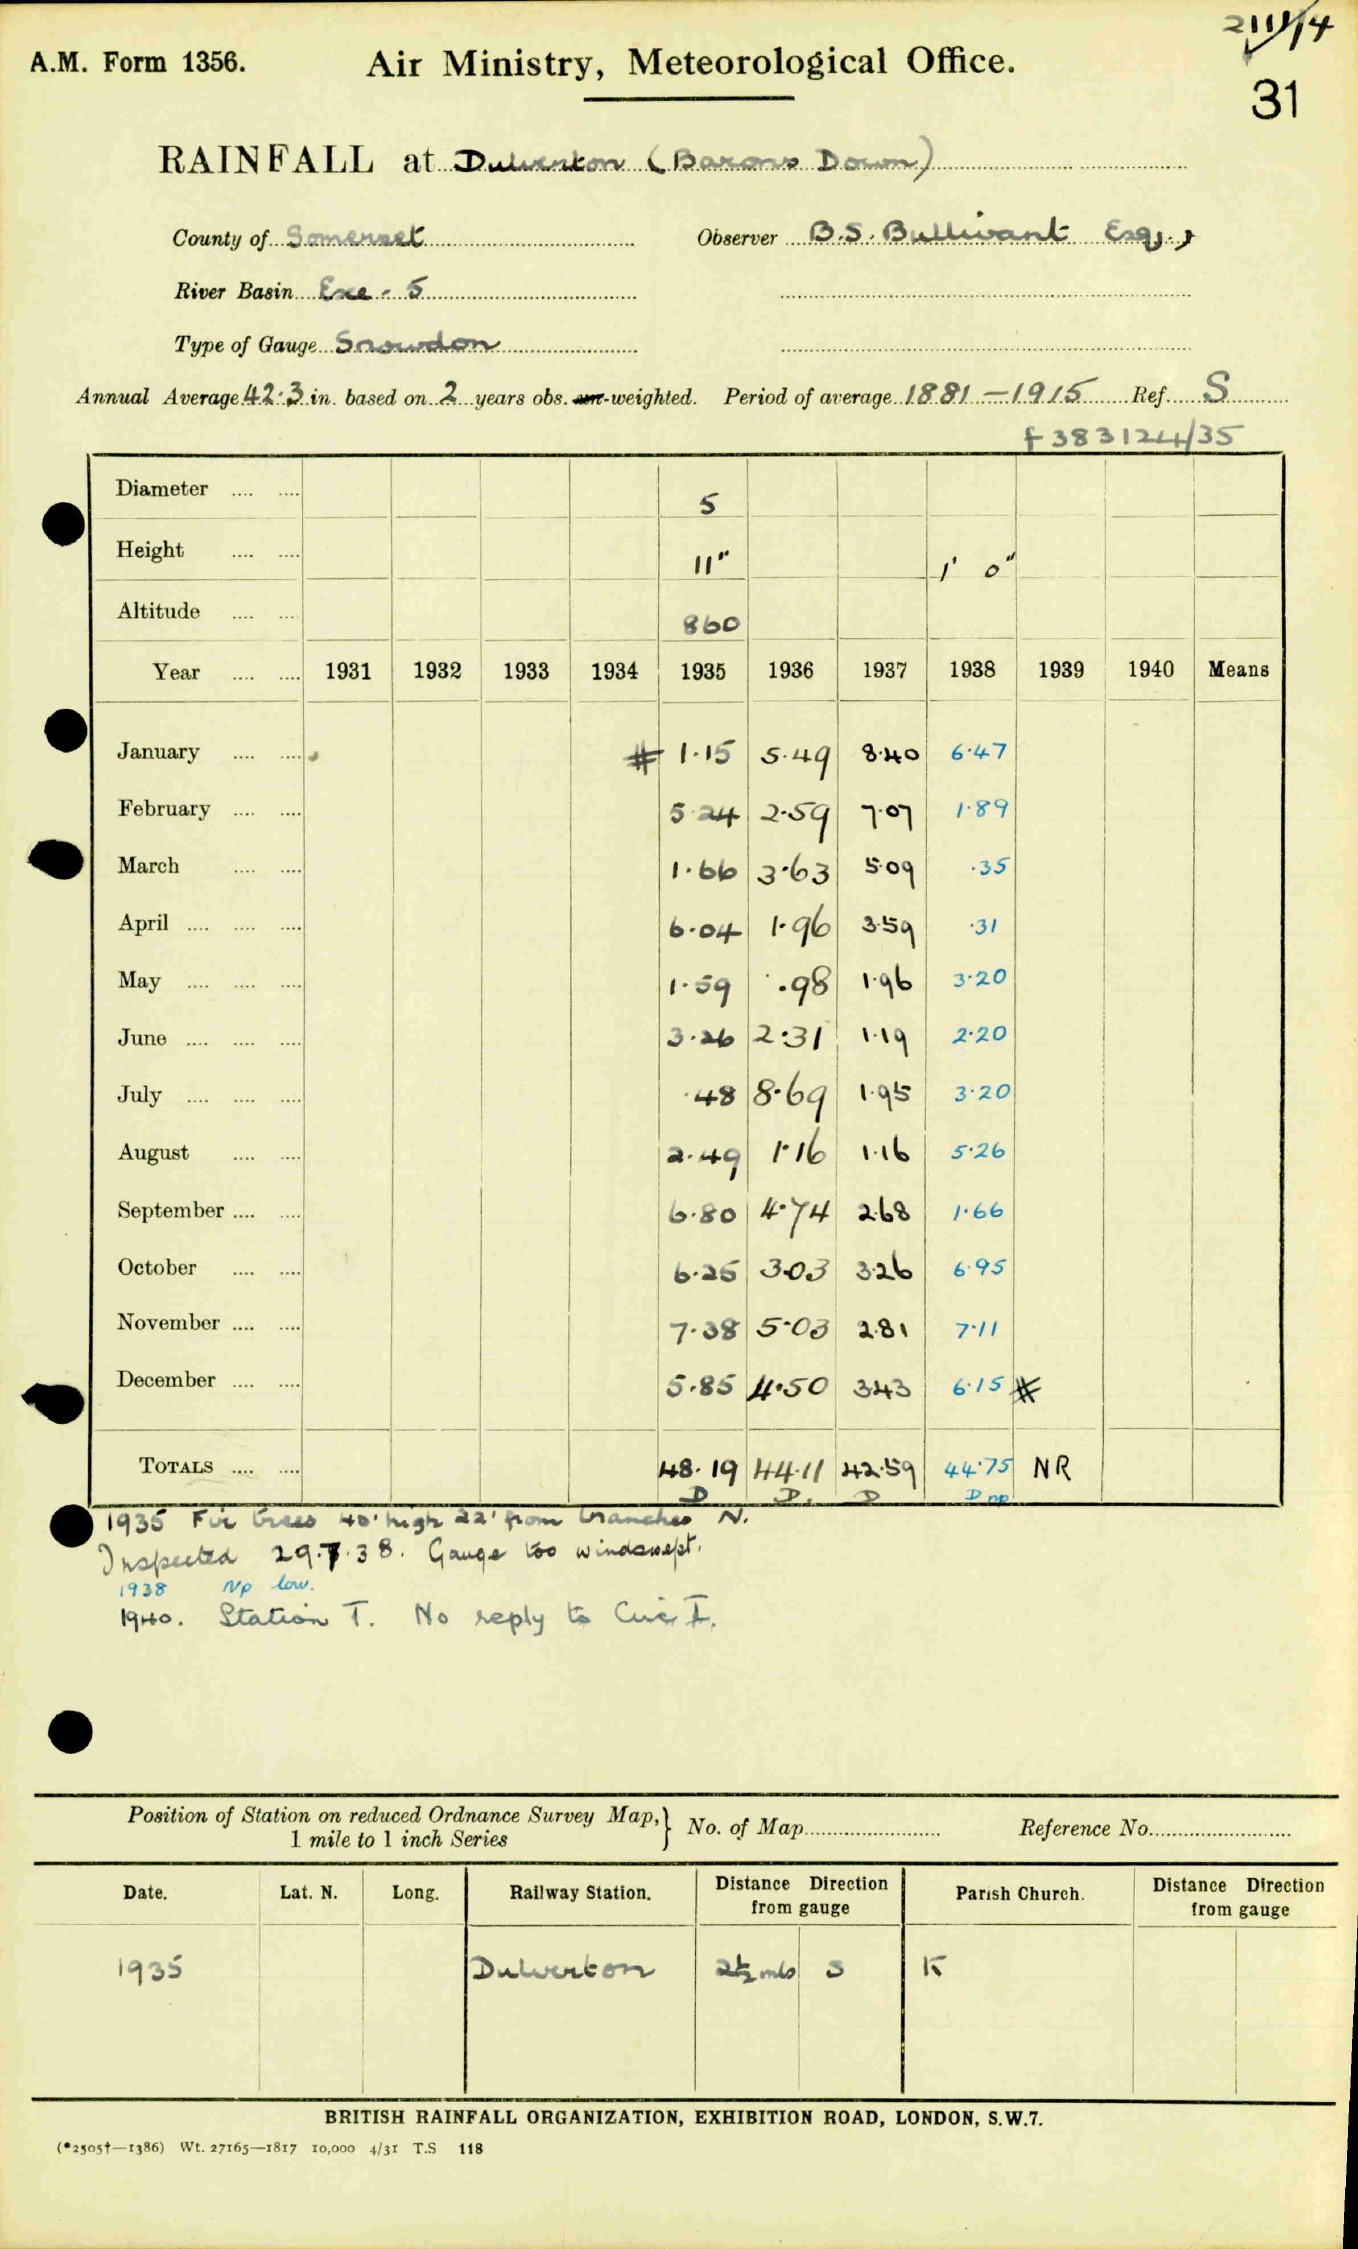 2111/14
A.M. Form 1356. Air Ministry, Meteorological Office.
31
RAINFALL at Dulverton (Barons Down)
County of Somerset Observer B.S. Bullivant Esq.,
River Basin Exe - 5
Type of Gauge Snowdon
Annual Average 42.3 in. based on 2 years obs. un-weighted. Period of average 1881-1915 Ref. S
f 383124/35
Diameter .... .... 5
Height .... .... 11" 1' 0"
Altitude .... .... 860
Year .... .... 1931 1932 1933 1934 1935 1936 1937 1938 1939 1940 Means
January .... .... # 1.15 5.49 8.40 6.47
February .... .... 5.24 2.59 7.07 1.89
March .... .... 1.66 3.63 5.09 .35
April .... .... .... 6.04 1.96 3.59 .31
May .... .... .... 1.59 .98 1.96 3.20
June .... .... .... 3.26 2.31 1.19 2.20
July .... .... .... .48 8.69 1.95 3.20
August .... .... 2.49 1.16 1.16 5.26
September .... .... 6.80 4.74 2.68 1.66
October .... .... 6.25 3.03 3.26 6.95
November .... .... 7.38 5.03 2.81 7.11
December .... .... 5.85 4.50 3.43 6.15 #
TOTALS .... .... 48.19 44.11 42.59 44.75 NR
D D. D D np
1935 Fir trees 40' high 22' from branches N.
Inspected 29.7.38. Gauge too windswept.
1938 Np low.
1940. Station T. No reply to Circ I.
Position of Station on reduced Ordnance Survey Map,} No. of Map Reference No.
1 mile to 1 inch Series
Date. Lat. N. Long. Railway Station. Distance Direction from gauge Parish Church. Distance Direction from gauge
1935 Dulverton 2½ mls S K
BRITISH RAINFALL ORGANIZATION, EXHIBITION ROAD, LONDON, S.W.7.
(*2505†—1386) Wt. 27165—1817 10,000 4/31 T.S 118